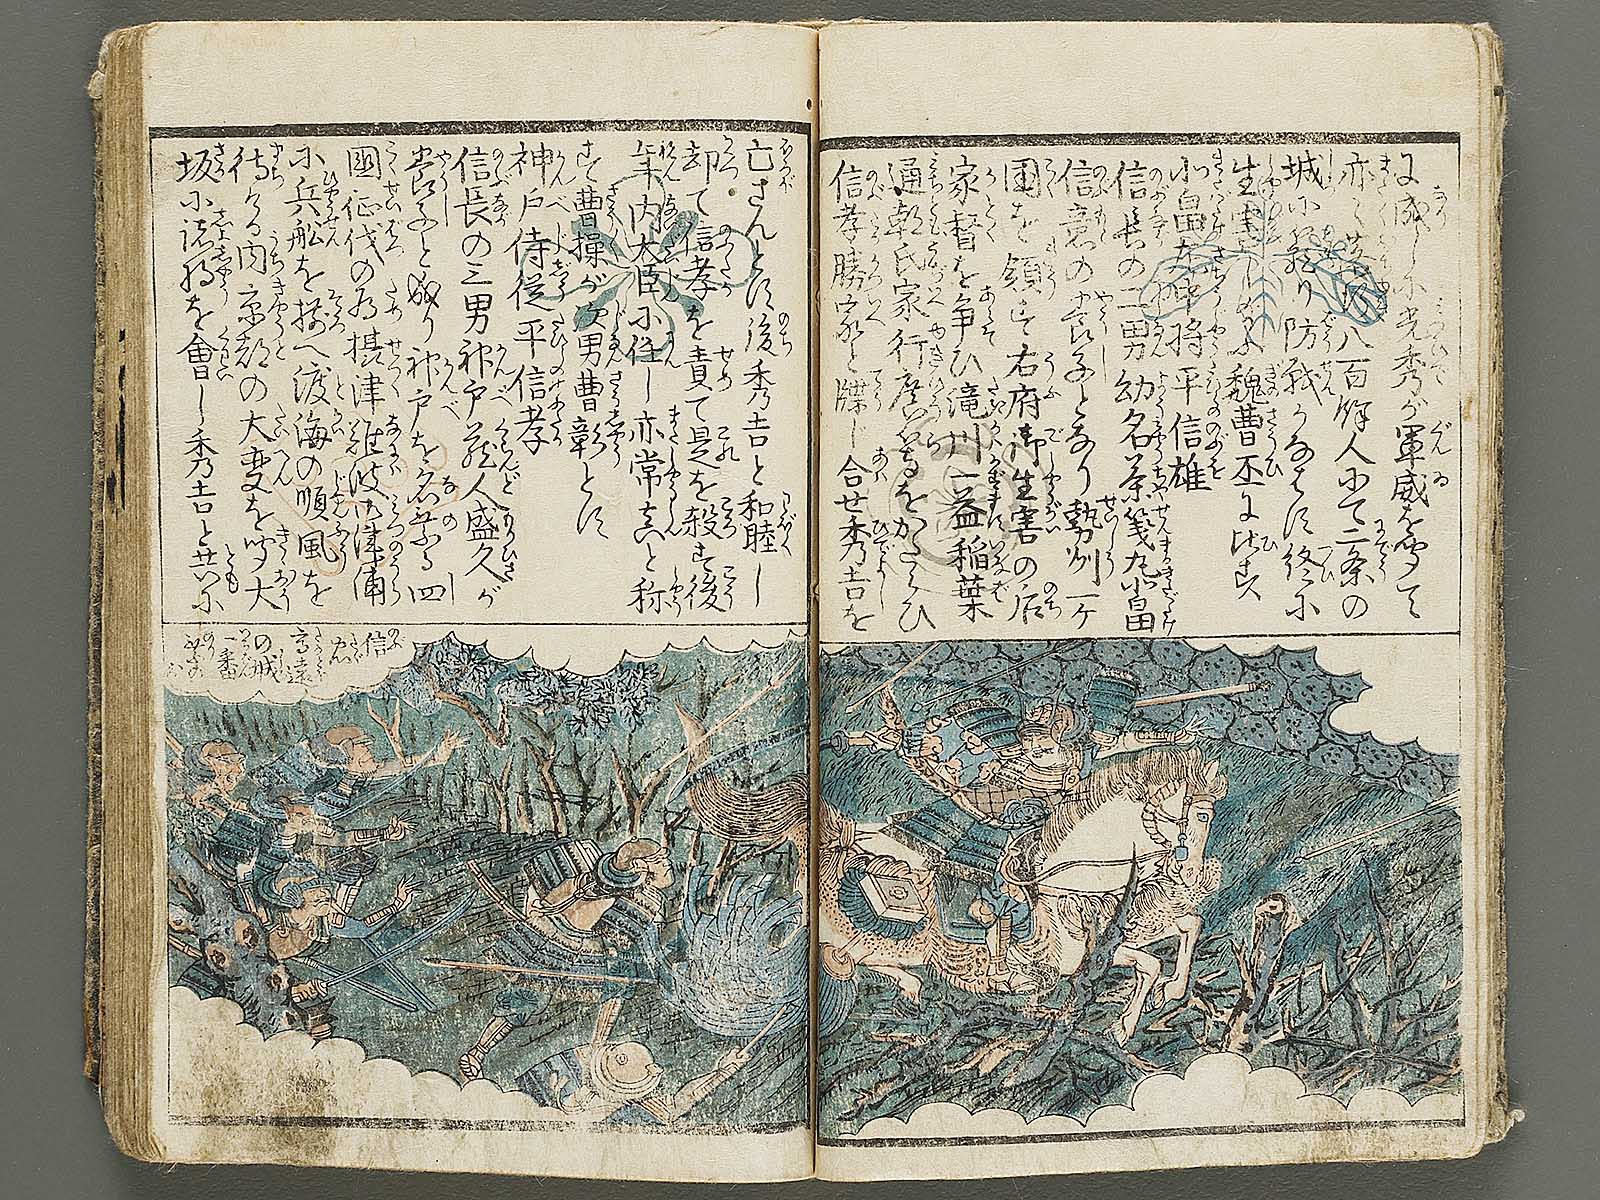 に威し小光秀が軍威を聞て
亦八百餘人にて二条の
城に籠り防戦かなはず終に
生害し給ふ魏曹丕に比す
北畠左中将平信雄
信長の二男幼名茶箋丸北畠
信意の養子となり勢州一ヶ
國を領す右府御生害の后
家督を争ひ滝川一益稲葉
通朝氏家行廣をかたらひ
信孝勝家と牒じ合せ秀吉を
亡さんとす後秀吉と和睦し
却て信孝を責て是を殺す後
年内大臣に任し亦常真と称
す曹操が次男曹彰とす
神戸侍従平信孝
信長の三男神戸蔵人盛久が
養子と成り神戸を名乗る四
國征伐の為摂津難波の津浦
に兵舩を揃へ渡海の順風を
待ける内京都の大変を聞大
坂に諸将を會し秀吉と共に
信忠
高遠
の城
一番